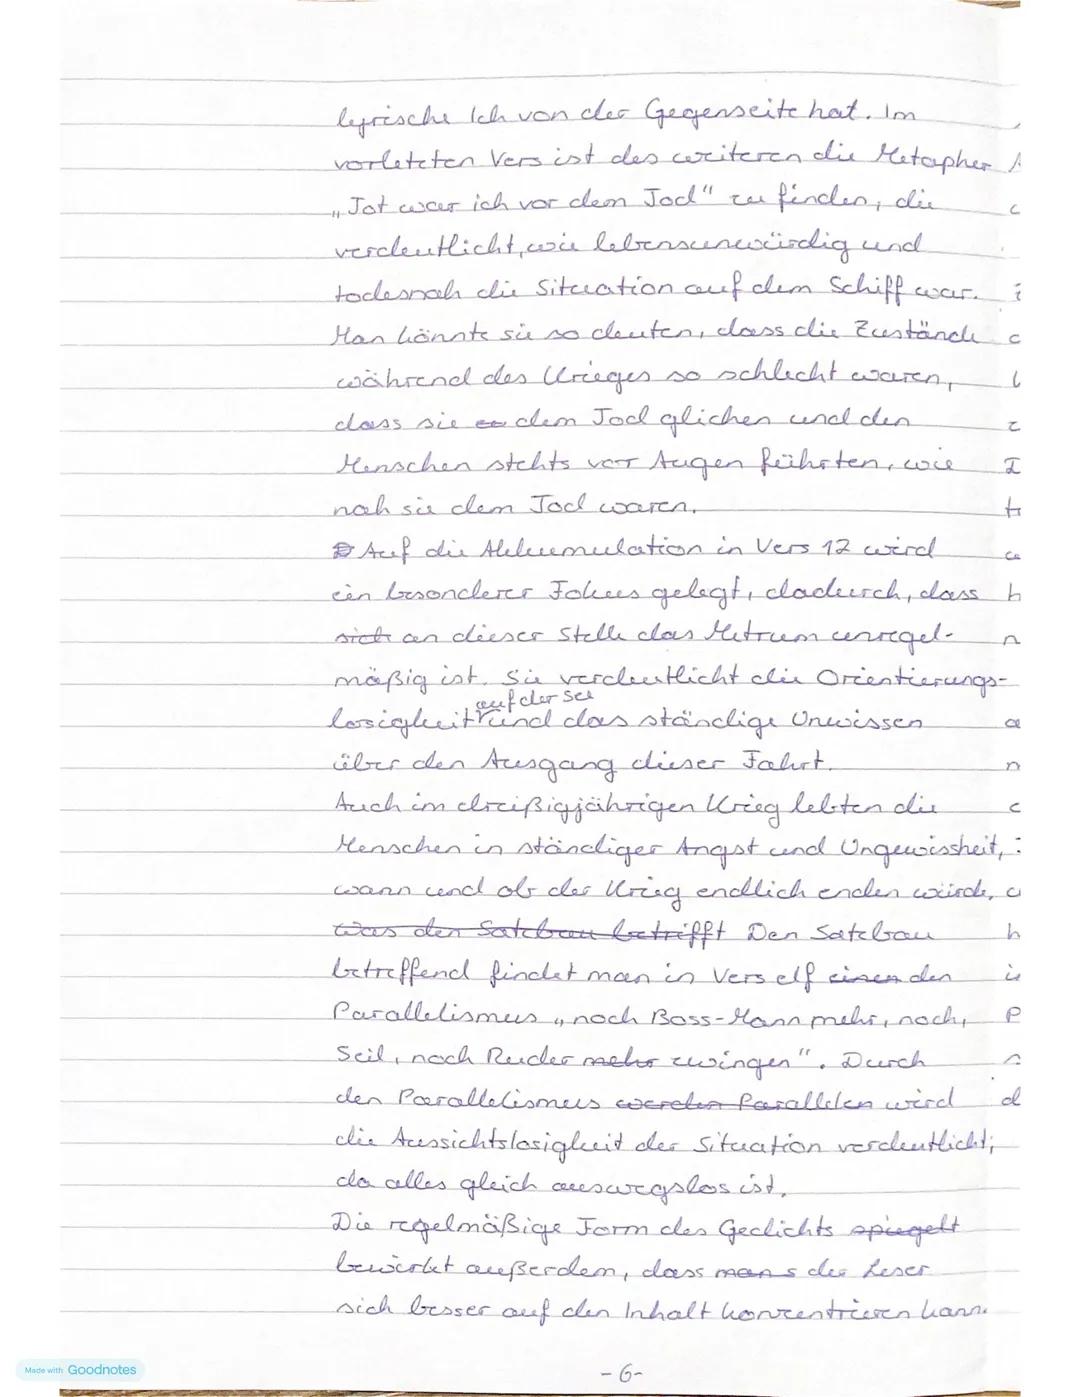 lyrische Ich von der Gegenseite hat. Im
vorletzten Vers ist des weiteren die Metapher
„Tot war ich vor dem Tod" zu finden, die
verdeutlicht, wie lebensunwürdig und
todesnah die Situation auf dem Schiff war.
Man könnte sie so deuten, dass die Zustände
während des Krieges so schlecht waren,
dass sie dem Tod glichen und den
Menschen stehts vor Augen führten, wie
nah sie dem Tod waren.
Auf die Akkumulation in Vers 12 wird
ein besonderer Fokus gelegt, dadurch, dass
sich an dieser Stelle das Metrum unregel-
mäßig ist. Sie verdeutlicht die Orientierungs-
auf der See
losigkeit und das ständige Unwissen
über den Ausgang dieser Fahrt.
Auch im dreißigjährigen Krieg lebten die
Menschen in ständiger Angst und Ungewissheit,
wann und ob der Krieg endlich enden würde,
Was den Satzbau betrifft Den Satzbau
betreffend findet man in Vers elf einen den
Parallelismus „noch Boss-Mann mehr, noch,
Seil, noch Ruder mehr zwingen". Durch
den Parallelismus werden Parallelen wird
die Aussichtslosigkeit der Situation verdeutlicht;
da alles gleich auswegslos ist.
Die regelmäßige Form des Gedichts spiegelt
bewirkt außerdem, dass man s der Leser
sich besser auf den Inhalt konzentrieren kann.
-6-
Made with Goodnotes